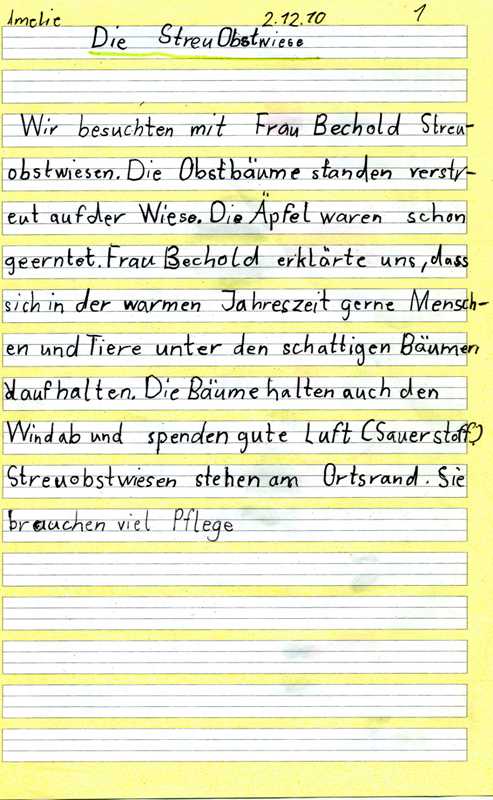 Amelie 2.12.10 1
Die StreuObstwiese
Wir besuchten mit Frau Bechold Streu-
obstwiesen. Die Obstbäume standen verstr-
eut auf der Wiese. Die Äpfel waren schon
geerntet. Frau Bechold erklärte uns, dass
sich in der warmen Jahreszeit gerne Mensch-
en und Tiere unter den schattigen Bäumen
aufhalten. Die Bäume halten auch den
Wind ab und spenden gute Luft (Sauerstoff.)
Streuobstwiesen stehen am Ortsrand. Sie
brauchen viel Pflege